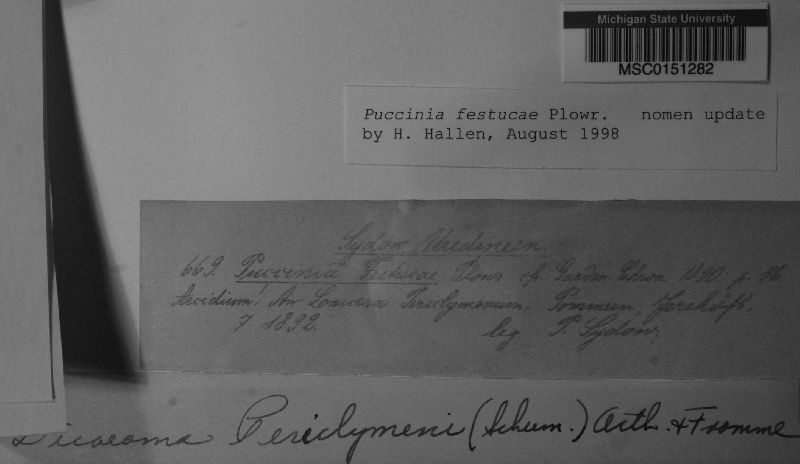 Michigan State University
MSC0151282
Puccinia festucae Plowr. nomen update
by H. Hallen, August 1998
Sydow Uredineen.
669. Puccinia Festucae Plowr cf. Garden Chron. p.
Aecidium! An Lonicera Periclymenum. Pommern,
7 1892. leg. P. Sydow.
Dicaeoma Periclymeni (Schum.) Arth. & Fromme